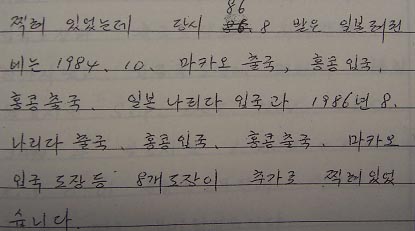 찍혀 있었는데 당시 86. 8 받은 일본려권
에는 1984. 10. 마카오 출국, 홍콩 입국,
홍콩 출국, 일본 나리다 입국과 1986년 8.
나리다 출국, 홍콩 입국, 홍콩 출국, 마카오
입국 도장 등 8개 도장이 추가로 찍혀 있었
습니다.